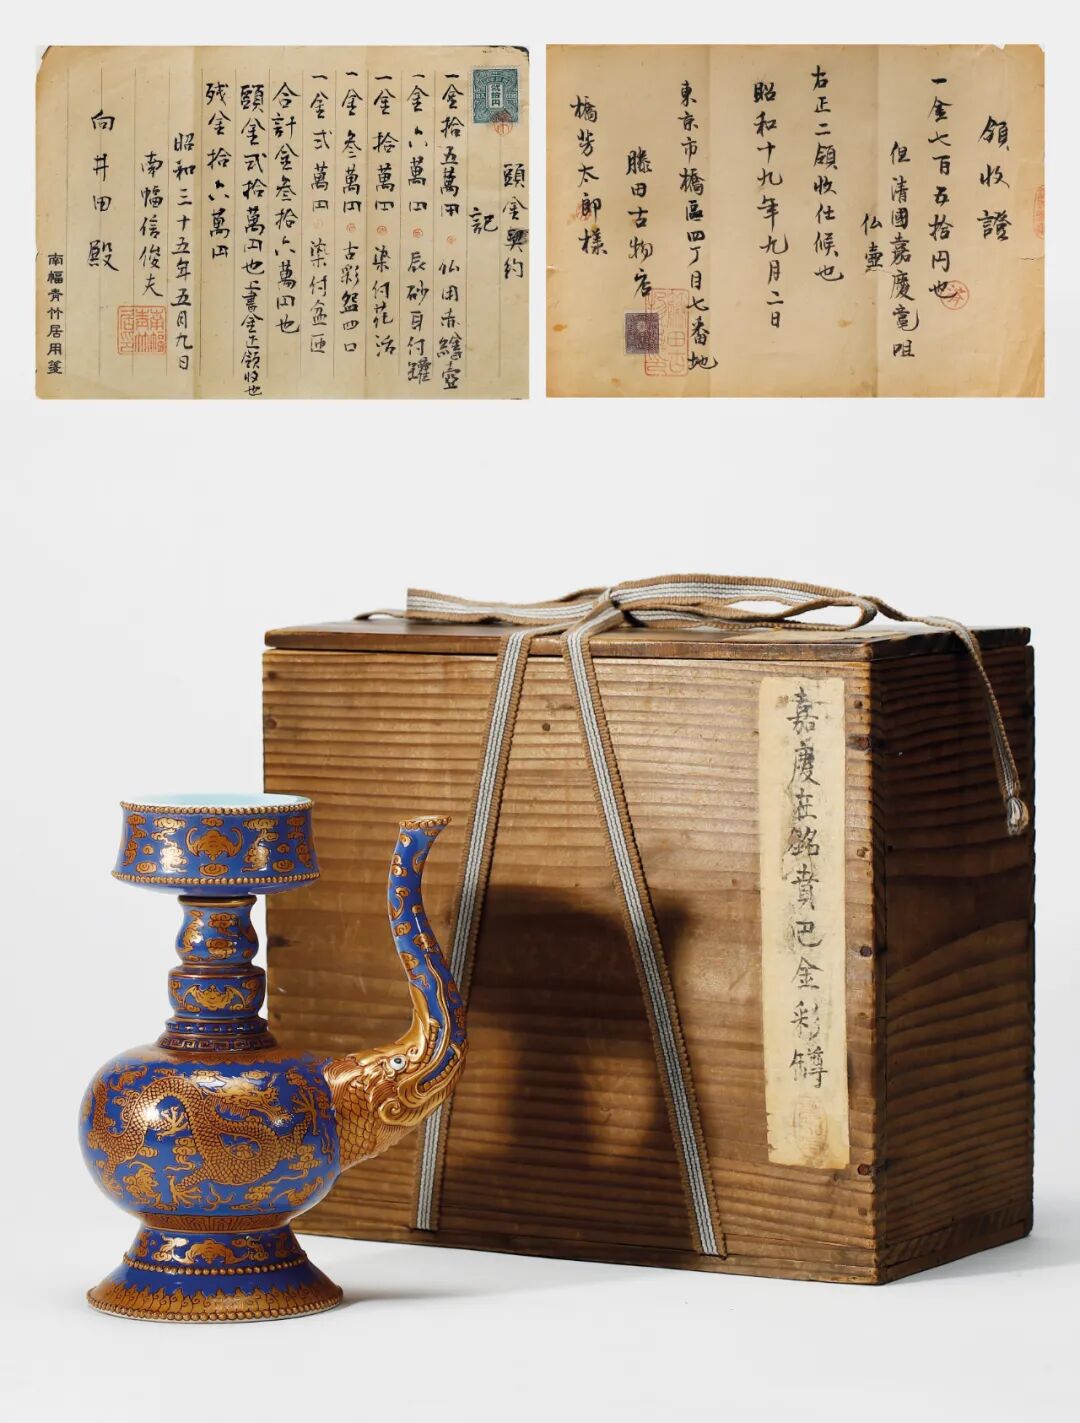 頭金契約
記
一金拾五萬円 仏用赤繪壺
一金六萬円 辰砂耳付罐
一金拾萬円 染付花活
一金叁萬円 古彩盌四口
一金弐萬円 染付盆
合計金叁拾六萬円也
頭金弐拾萬円也上書金正領收也
残金拾六萬円
昭和三十五年五月九日
南幅信俊夫
向井田殿
南幅青竹居用箋
領收證
一金七百五拾円也
但清國嘉慶竜咀
仏壷
右正二領收仕候也
昭和十九年九月二日
東京市橋區四丁目七番地
滕田古物店
橋芳太郎様
嘉慶在銘賁巴金彩罇